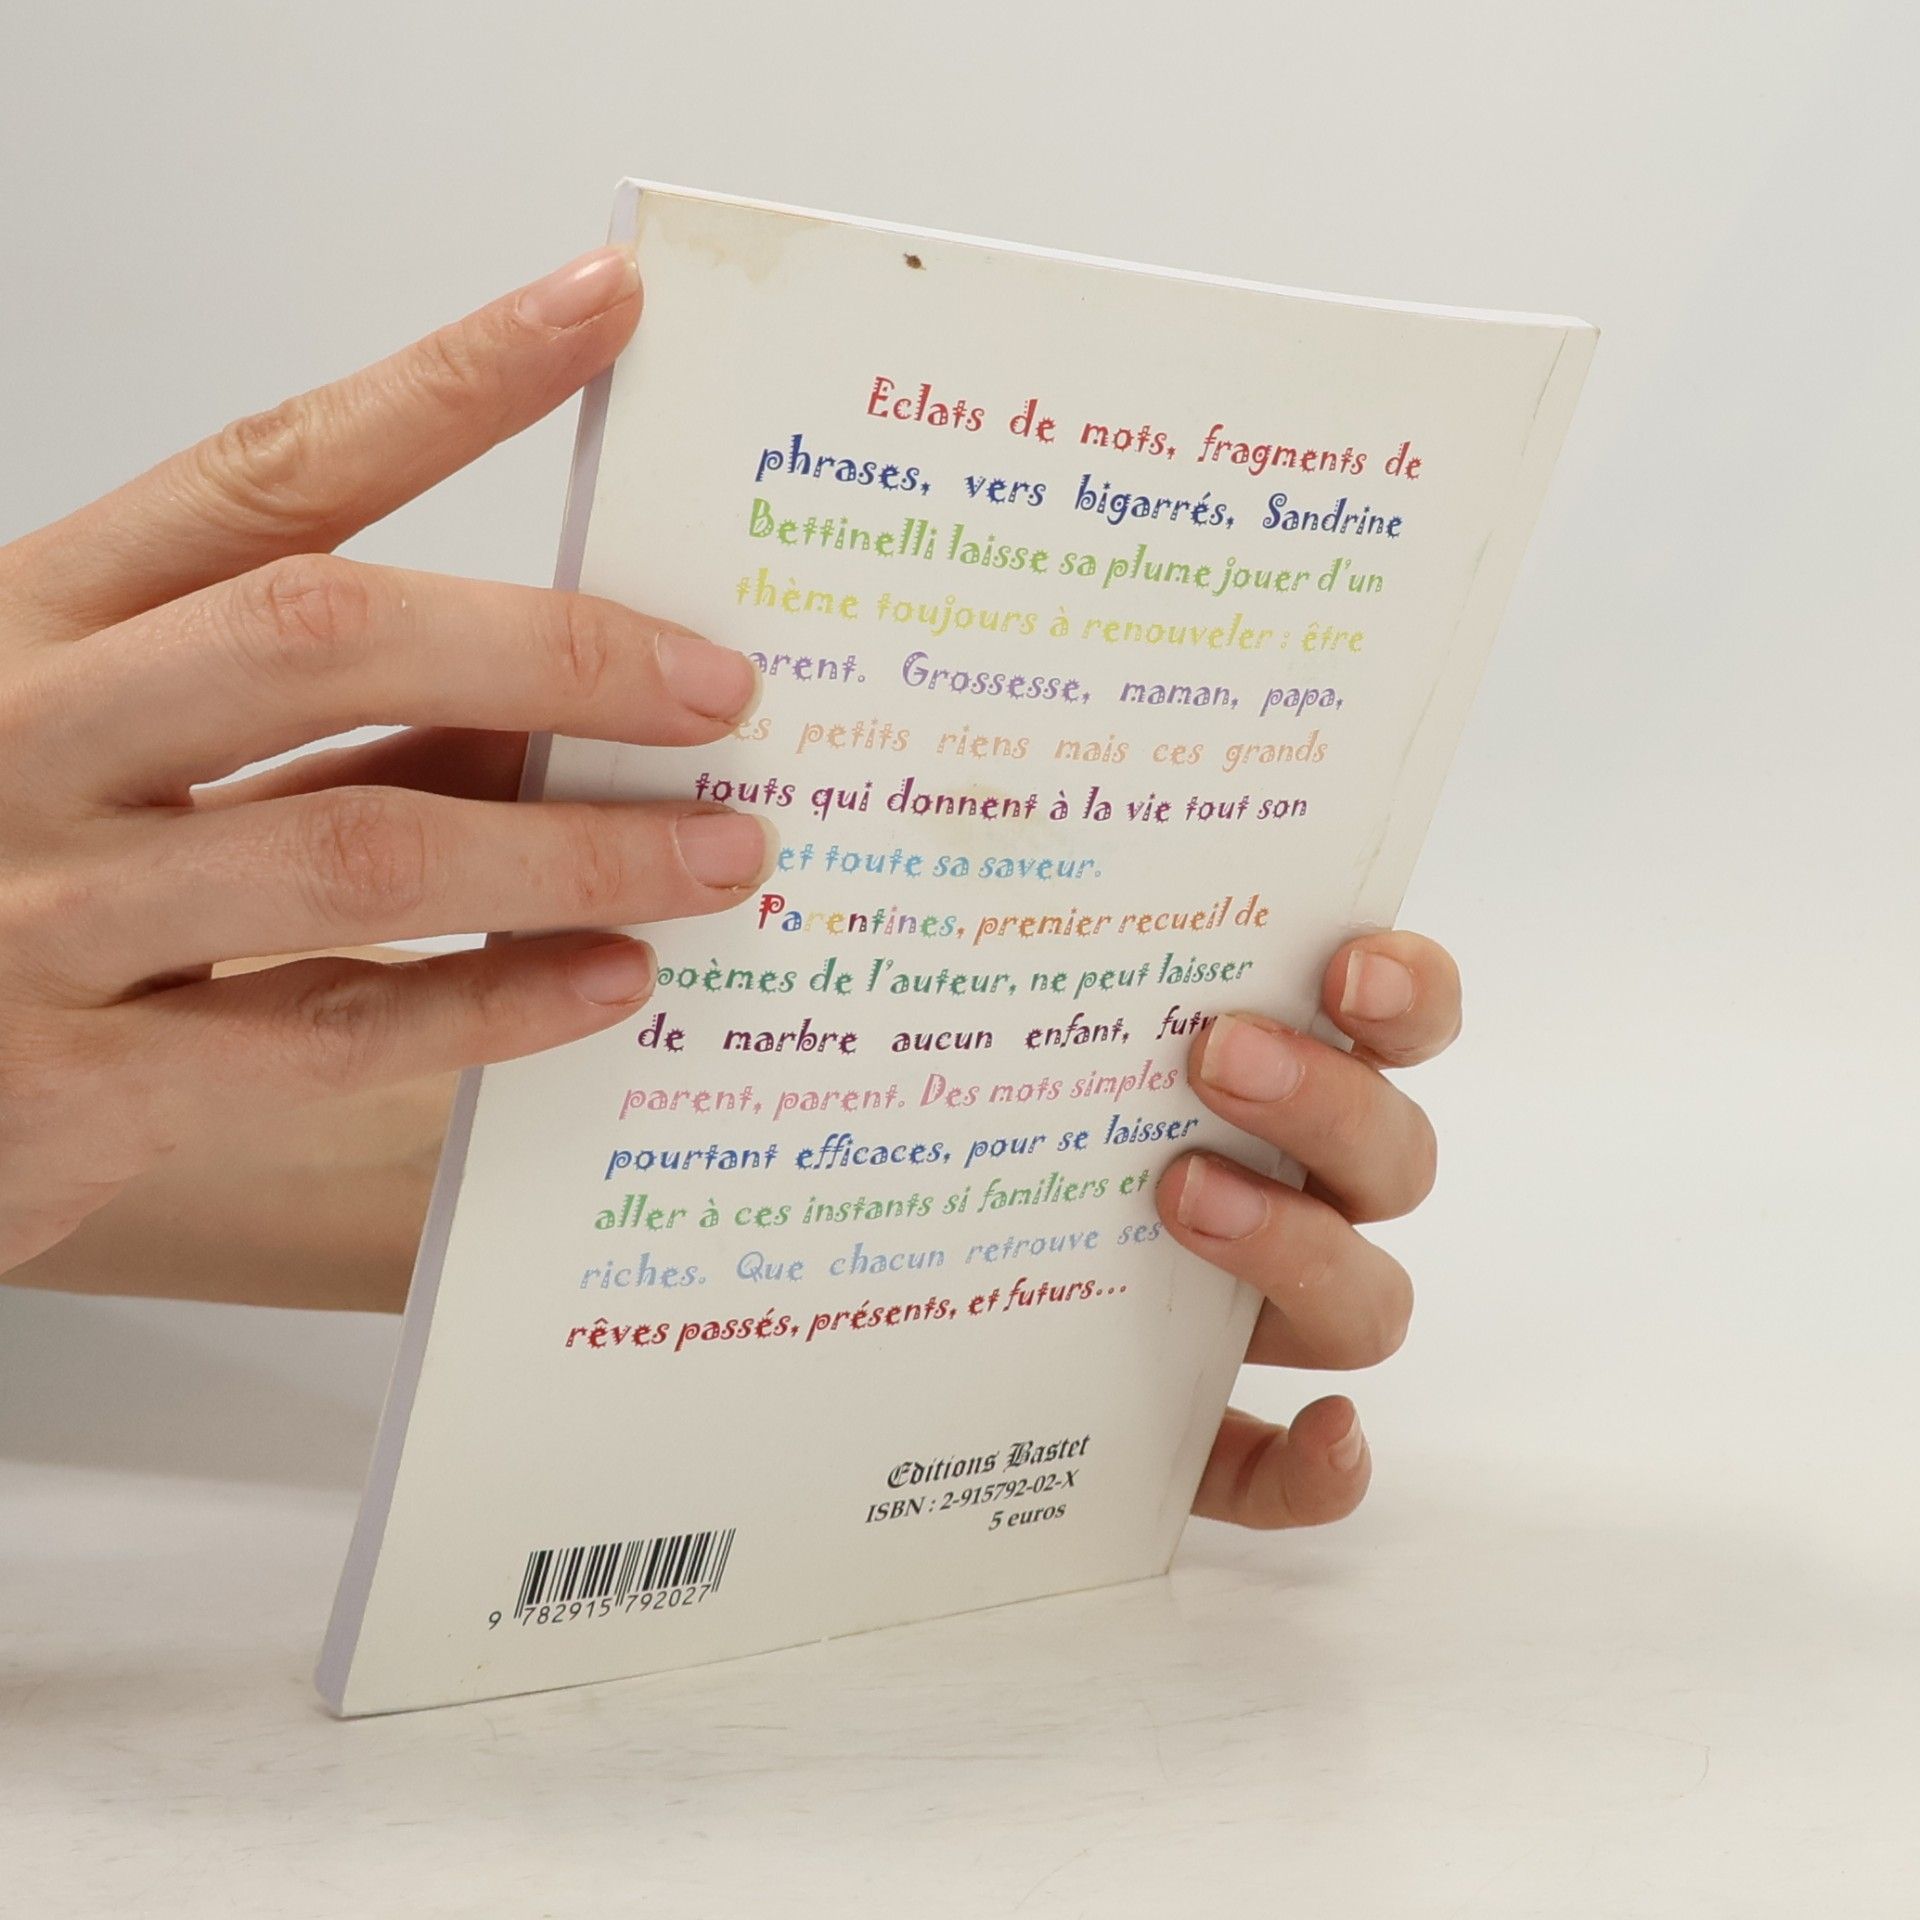 Eclats de mots, fragments de
phrases, vers bigarrés, Sandrine
Bettinelli laisse sa plume jouer d'un
thème toujours à renouveler : être
arent. Grossesse, maman, papa,
es petits riens mais ces grands
touts qui donnent à la vie tout son
et toute sa saveur.
Parentines, premier recueil de
poèmes de l'auteur, ne peut laisser
de marbre aucun enfant, futu
parent, parent. Des mots simples
pourtant efficaces, pour se laisser
aller à ces instants si familiers et
riches. Que chacun retrouve ses
rêves passés, présents, et futurs...
Editions Bastet
ISBN : 2-915792-02-X
5 euros
9 782915 792027